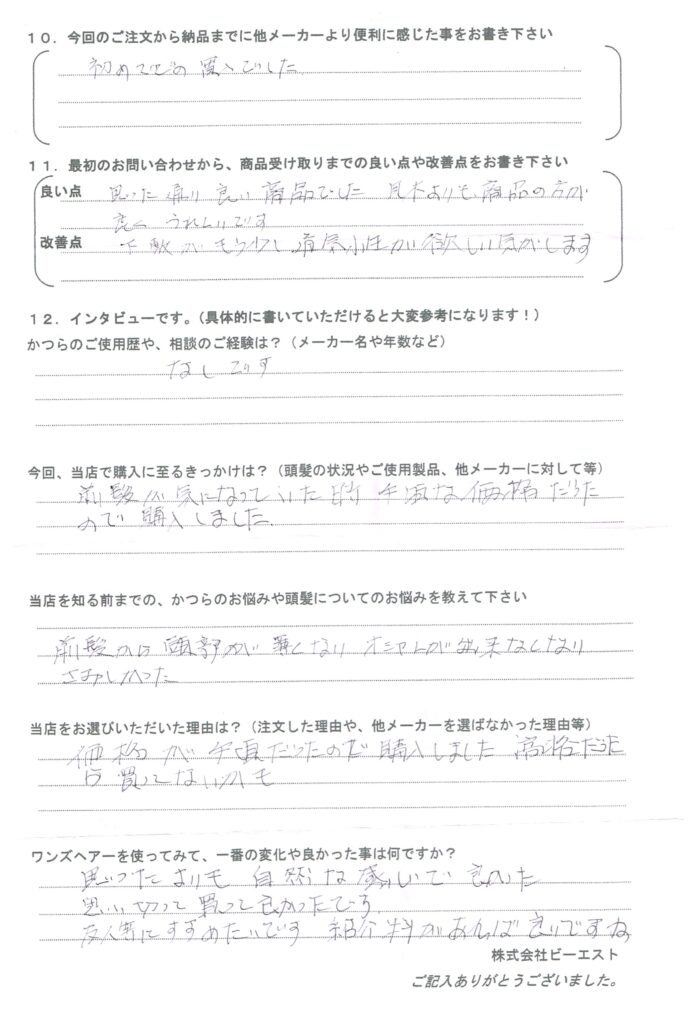 10．今回のご注文から納品までに他メーカーより便利に感じた事をお書き下さい
初めての買入でした
11．最初のお問い合わせから、商品受け取りまでの良い点や改善点をお書き下さい
良い点 思った通り良い商品でした 見本よりも商品の方が
良く うれしいです
改善点 下敷がもう少し 伸縮性が欲しい気がします
12．インタビューです。（具体的に書いていただけると大変参考になります！）
かつらのご使用歴や、相談のご経験は？（メーカー名や年数など）
なしです
今回、当店で購入に至るきっかけは？（頭髪の状況やご使用製品、他メーカーに対して等）
前髪が気になっていた時 手頃な価格だった
ので購入しました
当店を知る前までの、かつらのお悩みや頭髪についてのお悩みを教えて下さい
前髪から頭部が薄くなり オシャレが出来なくなり
さみしかった
当店をお選びいただいた理由は？（注文した理由や、他メーカーを選ばなかった理由等）
価格が手頃だったので購入しました 高格だった
ら買ってないかも
ワンズヘアーを使ってみて、一番の変化や良かった事は何ですか？
思ったよりも自然な感いで良かった
思い切って買って良かったです
友人等にすすめたいです 紹介料があれば良いですね
株式会社ビーエスト
ご記入ありがとうございました。